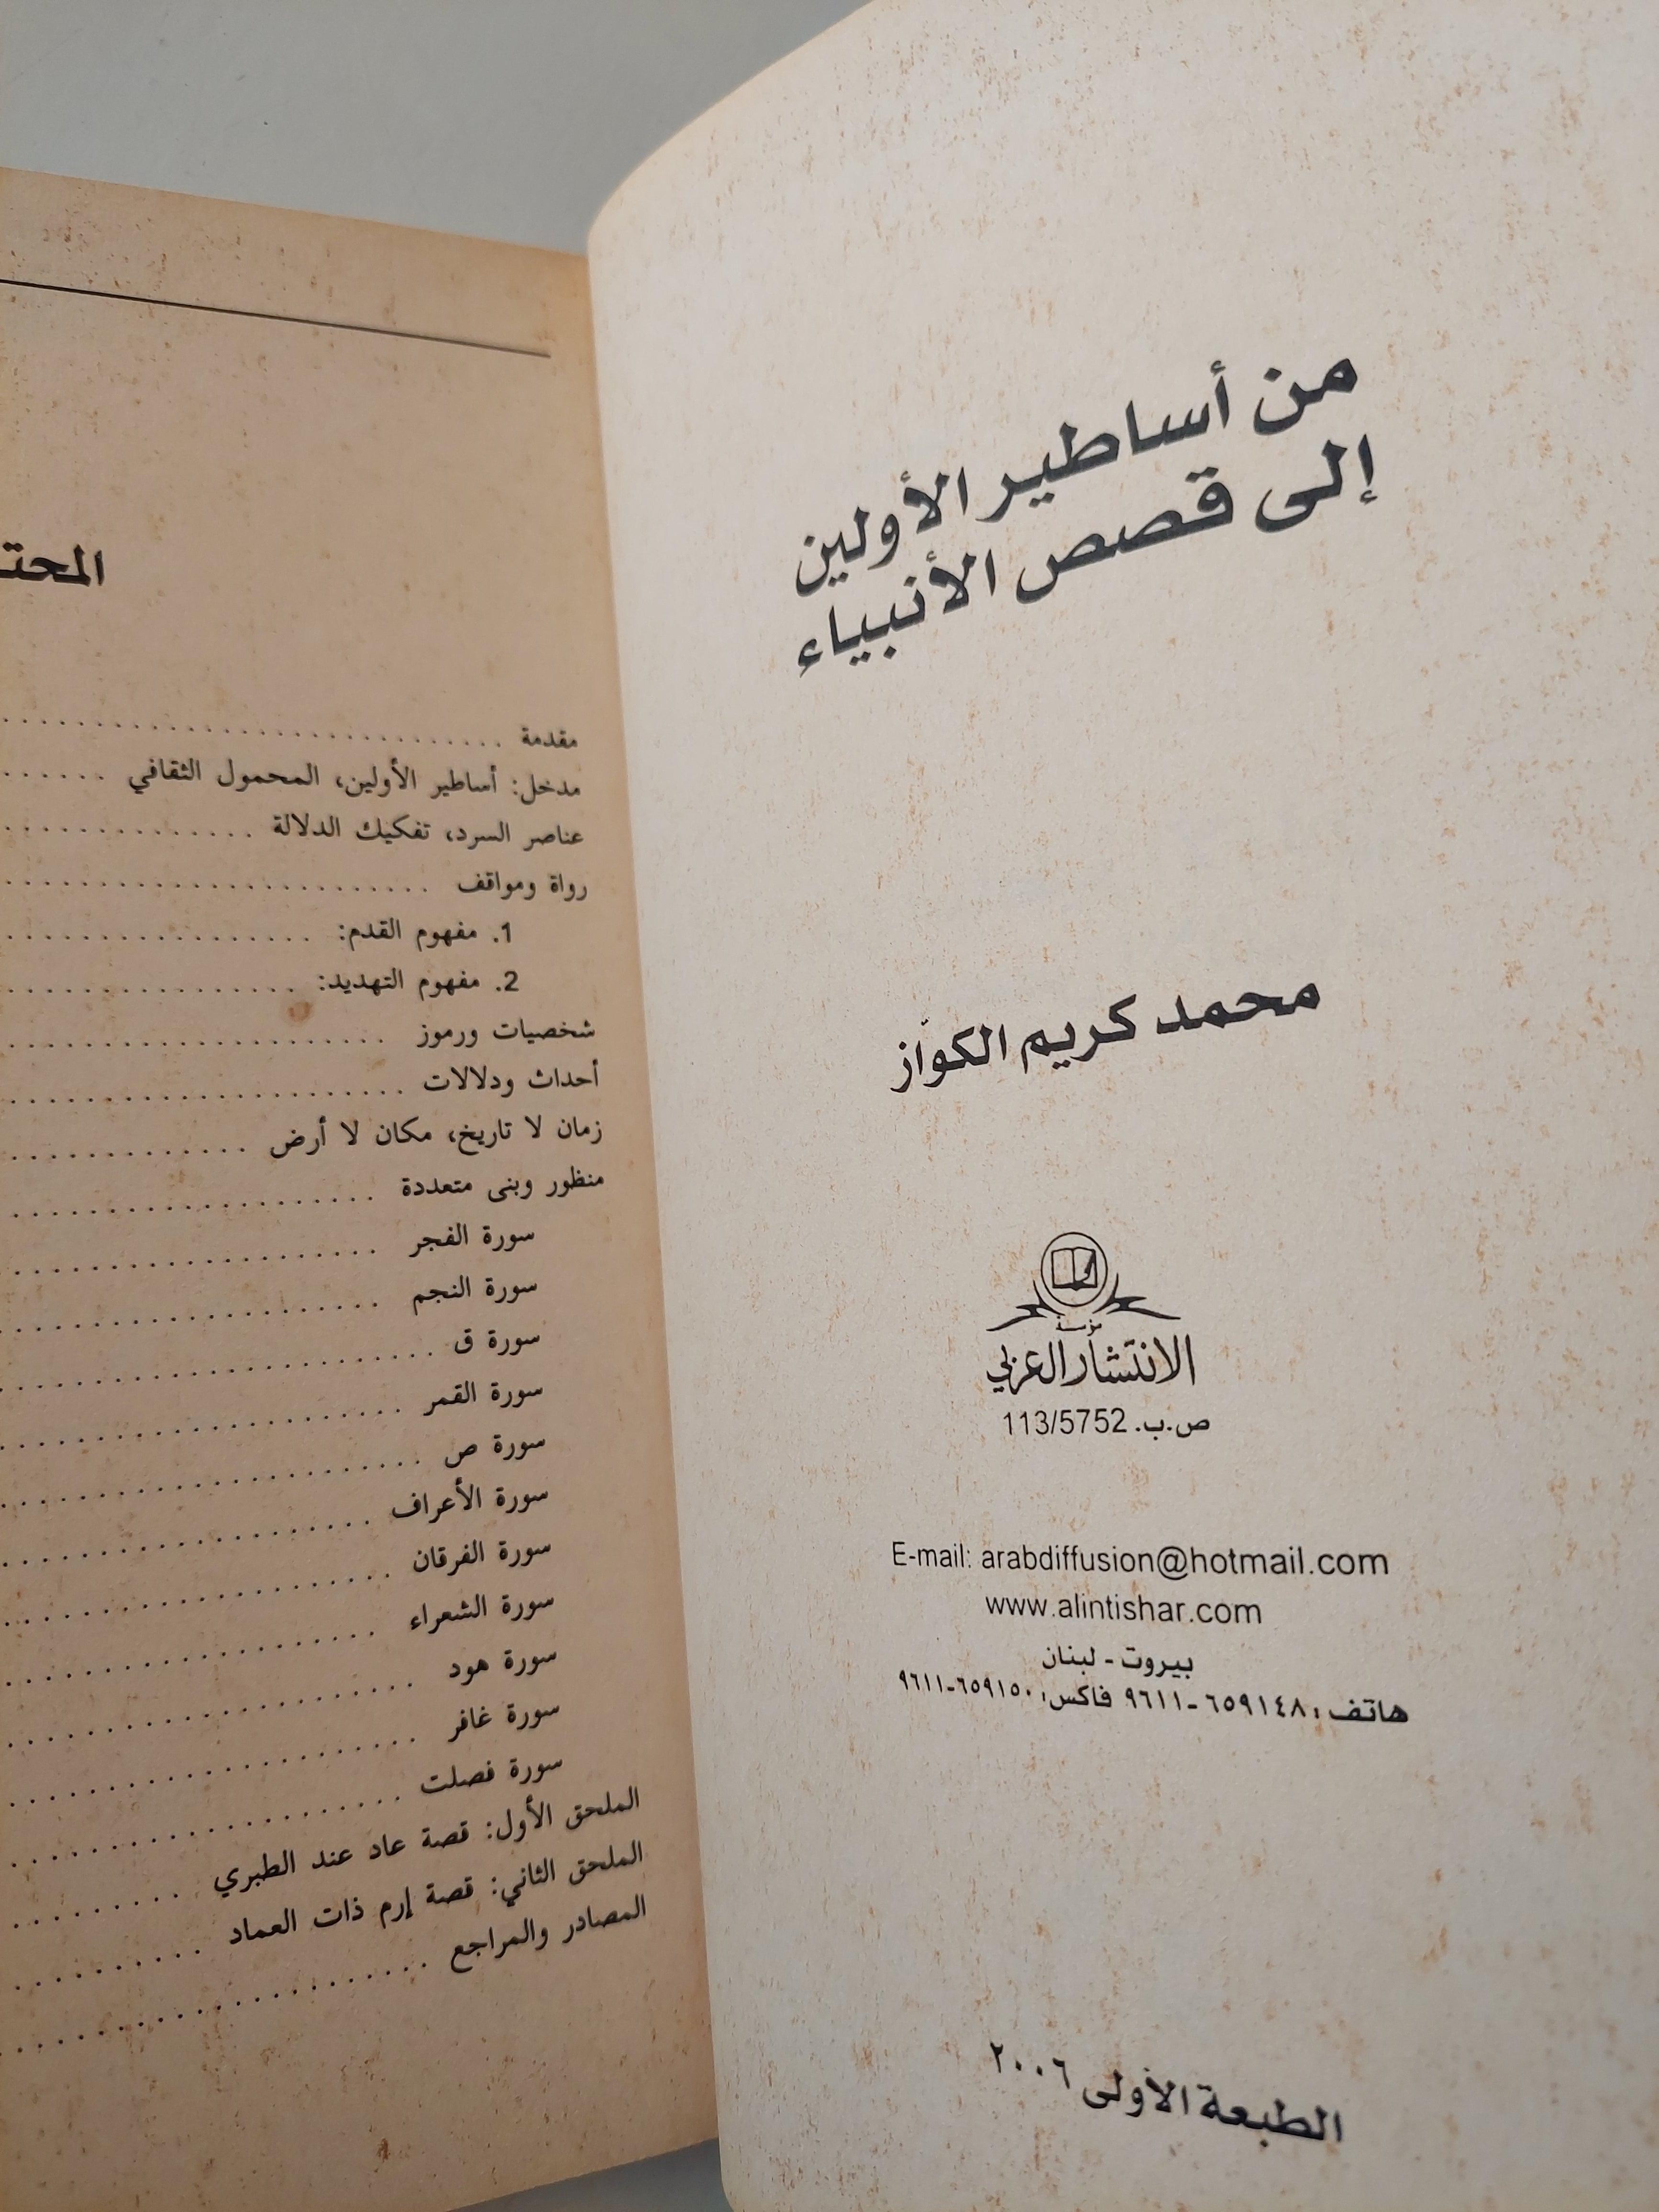 من أساطير الأولين
إلى قصص الأنبياء
محمد كريم الكوّاز
مؤسسة
الانتشار العربي
ص.ب. 113/5752
E-mail: arabdiffusion@hotmail.com
www.alintishar.com
بيروت - لبنان
هاتف: ٦٥٩١٤٨-٩٦١١ فاكس: ٦٥٩١٥٠-٩٦١١
الطبعة الأولى ٢٠٠٦
مقدمة
مدخل: أساطير الأولين، المحمول الثقافي
عناصر السرد، تفكيك الدلالة
رواة ومواقف
1. مفهوم القدم:
2. مفهوم التهديد:
شخصيات ورموز
أحداث ودلالات
زمان لا تاريخ، مكان لا أرض
منظور وبنى متعددة
سورة الفجر
سورة النجم
سورة ق
سورة القمر
سورة ص
سورة الأعراف
سورة الفرقان
سورة الشعراء
سورة هود
سورة غافر
سورة فصلت
الملحق الأول: قصة عاد عند الطبري
الملحق الثاني: قصة إرم ذات العماد
المصادر والمراجع